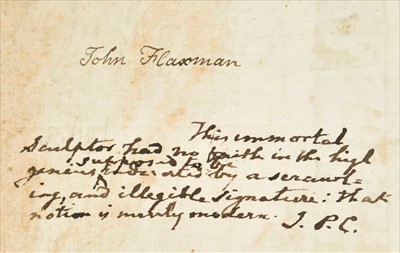 John Flaxman
This immortal
Sculptor had no faith in the high
supposed to be
genius indicated by a scrawl-
ing, and illegible signature: that
notion is merely modern. J. P. C.